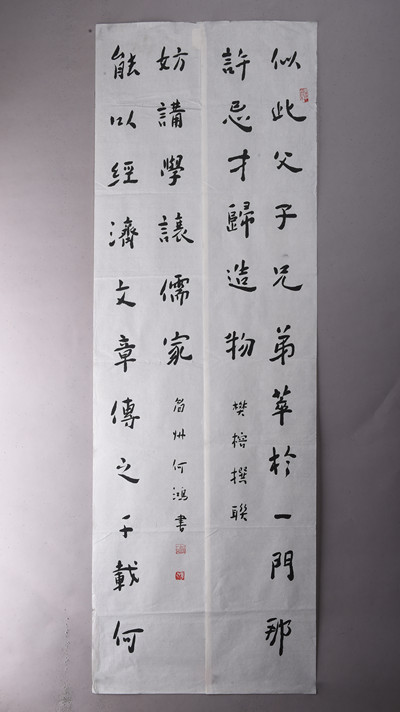 似此父子兄弟萃於一門那
許忌才歸造物
樊榕撰聯
能以經濟文章傳之千載何
妨講學讓儒家
眉州何鴻書